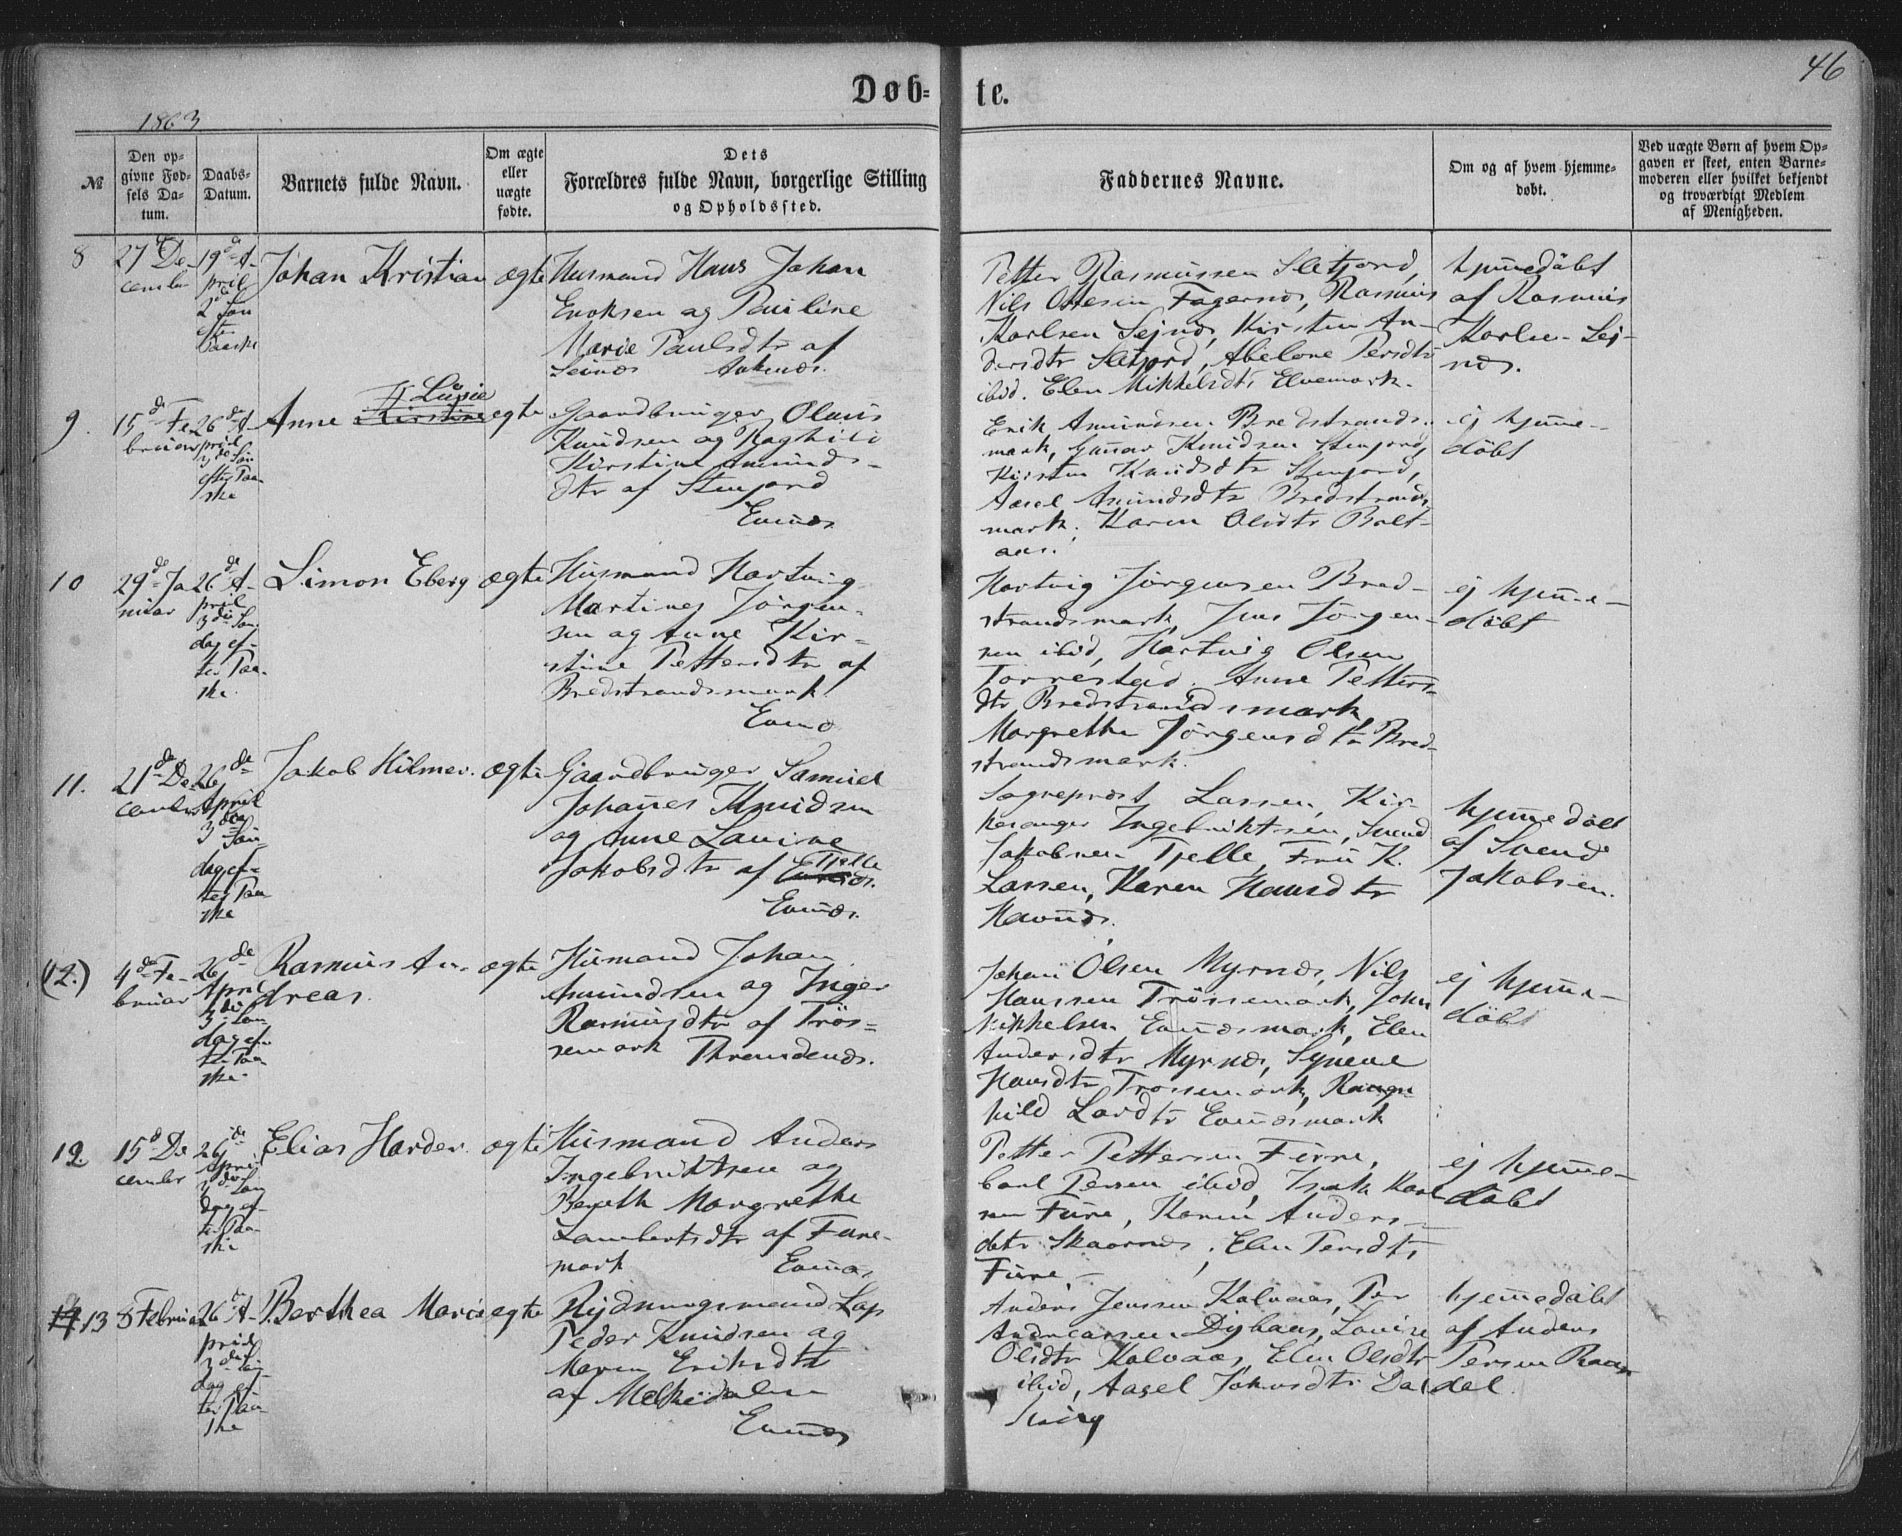 46
Døb-
te.
1863
№
Den op-
givne Fød-
sels Da-
tum.
Daabs-
Datum.
Barnets fulde Navn.
Om ægte
eller
uægte
fødte.
Dets
Forældres fulde Navn, borgerlige Stilling
og Opholdssted.
Faddernes Navne.
Om og af hvem hjemme-
døbt.
Ved uægte Børn af hvem Op-
gaven er skeet, enten Barne-
moderen eller hvilket bekjendt
og troværdigt Medlem
af Menigheden.
8
27de De-
cember
19de A-
pril
2d Søn
efter
Paaske
Johan Kristian
ægte
Husmand Hans Johan
Enoksen og Pauline
Marie Paulsdtr af
Seinæs Ankenæs.
Petter Rasmussen Sletjord,
Nils Olesen Fagernæs, Rasmus
Karlsen Sejnæs, Kirsten An-
dersdtr Sletjord, Abelone Persdtr
ibid. Elen Mikkelsdtr Elvemark.
hjemmedöbt
af Rasmus
Karlsen Sej-
næs.
9.
15de Fe-
bruar
26de A-
pril
3de Sön
efter Paa-
ske
Anne Kirstine
Lusie
ægte
Gaardbruger Olaus
Knudsen og Raghild
Kirstine Amunds-
dtr af Stenjord
Evenæs
Erik Amundsen Bredstrands-
mark, Gunnar Knudsen Stenjord,
Kirsten Knudsdtr Stenjord,
Aasel Amundsdtr Bredstrands
mark. Karen Olsdtr Bolt-
aas.
ej hjemme-
döbt
10
29de Ja-
nuar
26de A-
pril
3die Søn-
dag ef-
ter Paa-
ske.
Simon Eberg
ægte
Husmand Hartvig
Martines Jörgen-
sen og Anne Kir-
stine Pettersdtr af
Bredstrandsmark
Evenæs
Hartvig Jörgensen Bred-
strandsmark, Jens Jörgen-
sen ibid, Hartvig Olsen
Torrestad. Anne Petters-
dtr Bredstrandsmark,
Margrethe Jörgensdtr Bred-
strandsmark.
ej hjemme-
döbt
11.
21de De-
cember
26de
April
3die
Søn
dag ef-
ter Paa
ske
Jakob Hilmer.
ægte
Gaardbruger Samuel
Johannes Knudsen
og Anne Lavine
Jakobsdtr af Tjelle
Evenæs.
Sogneprest Lassen, Kir-
kesanger Ingebriktsen, Svend
Jakobsen Tjelle, Frü K.
Lassen, Karen Hansdtr
Havnæs.
hjemmedöbt
af Svend
Jakobsen.
(12.)
4de Fe-
bruar
26de
April
3die Søn-
dag ef-
ter Paa
ske.
Rasmus An-
dreas.
ægte
Husmand Johan
Amundsen og Inger
Rasmusdtr af Trös-
semark Thrændenæs.
Johan Olsen Myrnæs, Nils
Hanssen Trössemark, John
Mikkelsen Evenæsmark, Elen
Andersdtr Myrnæs, Synneve
Hansdtr Trössemark, Ragn-
hild Larsdtr Evenæsmark
ej hjemme-
döbt
12.
15de De
cember
26de
April
3die Søn
dag ef-
ter Paa-
ske
Elias Harder.
ægte
Husmand Anders
Ingebriktsen og
Bereth Margrethe
Lambertsdtr af Fure-
mark Evenæs
Petter Pettersen Furre,
Carl Persen ibid, Isak Karl
sen Fure, Karen Anders-
datr Skaarnæs, Elen Persdtr
Fure.
ej hjemme-
döbt
13
8 Februar
26de A-
pril
3die Søn-
dag ef-
ter Paa-
ske
Berthea Marie
ægte
Rydningsmand Lap
Peder Knudsen og
Maren Eriksdtr
af Melkedalen
Evenæs
Anders Jenssen Kalvaas, Per
Andreassen Dybaas, Lovise
Olsdtr Kalvaas, Elen Olsdtr
ibid, Aagel Johnsdtr Dal
hjemmedöbt
af Anders
Persen Raan-
del.